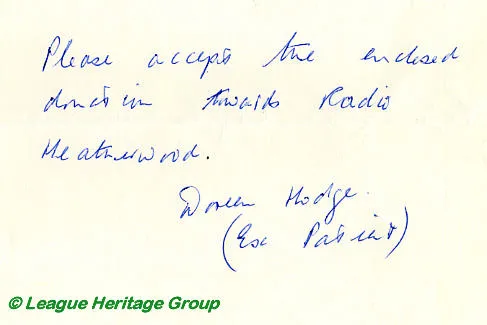 Please accept the enclosed
donation towards Radio
Heatherwood.
Doreen Hodge.
(Ex Patient)
© League Heritage Group